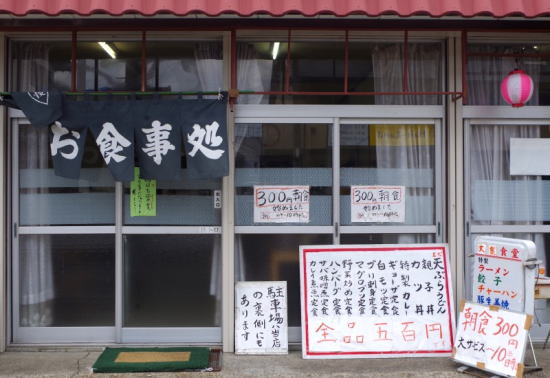 お食事処
300円朝食
始めました
300円朝食
始めました
駐車場は当店
の裏側にも
あります
天ぷらうどん
親子丼
カツ丼
特製カレー
ギョーザ定食
白モツ定食
ブリ刺身定食
マグロブツ定食
野菜炒め定食
ハンバーグ定食
サバ味噌煮定食
カレイ煮魚定食
全品五百円
食堂
特製
ラーメン
餃子
チャーハン
豚生姜焼
朝食300円
大サービス〜10時